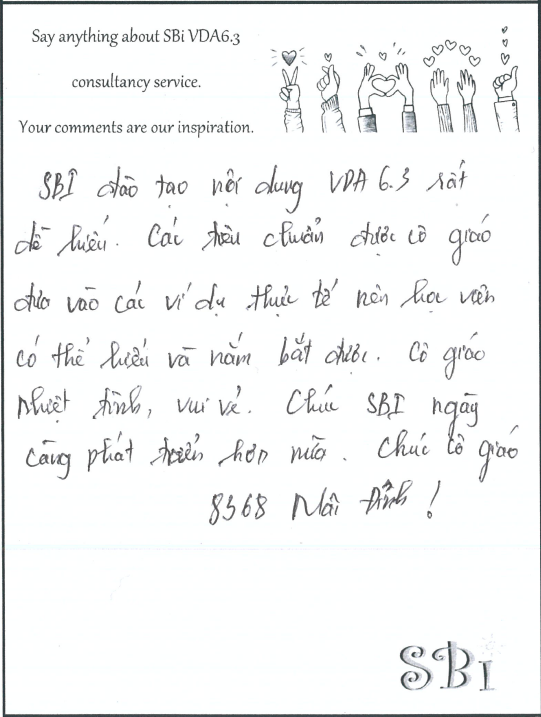 Say anything about SBi VDA6.3
consultancy service.
Your comments are our inspiration.
SBI đào tạo nội dung VDA 6.3 rất
dễ hiểu. Các tiêu chuẩn được cô giáo
đưa vào các ví dụ thực tế nên học viên
có thể hiểu và nắm bắt được. Cô giáo
nhiệt tình, vui vẻ. Chúc SBI ngày
càng phát triển hơn nữa. Chúc cô giáo
8368 Mãi Đỉnh!
SBI